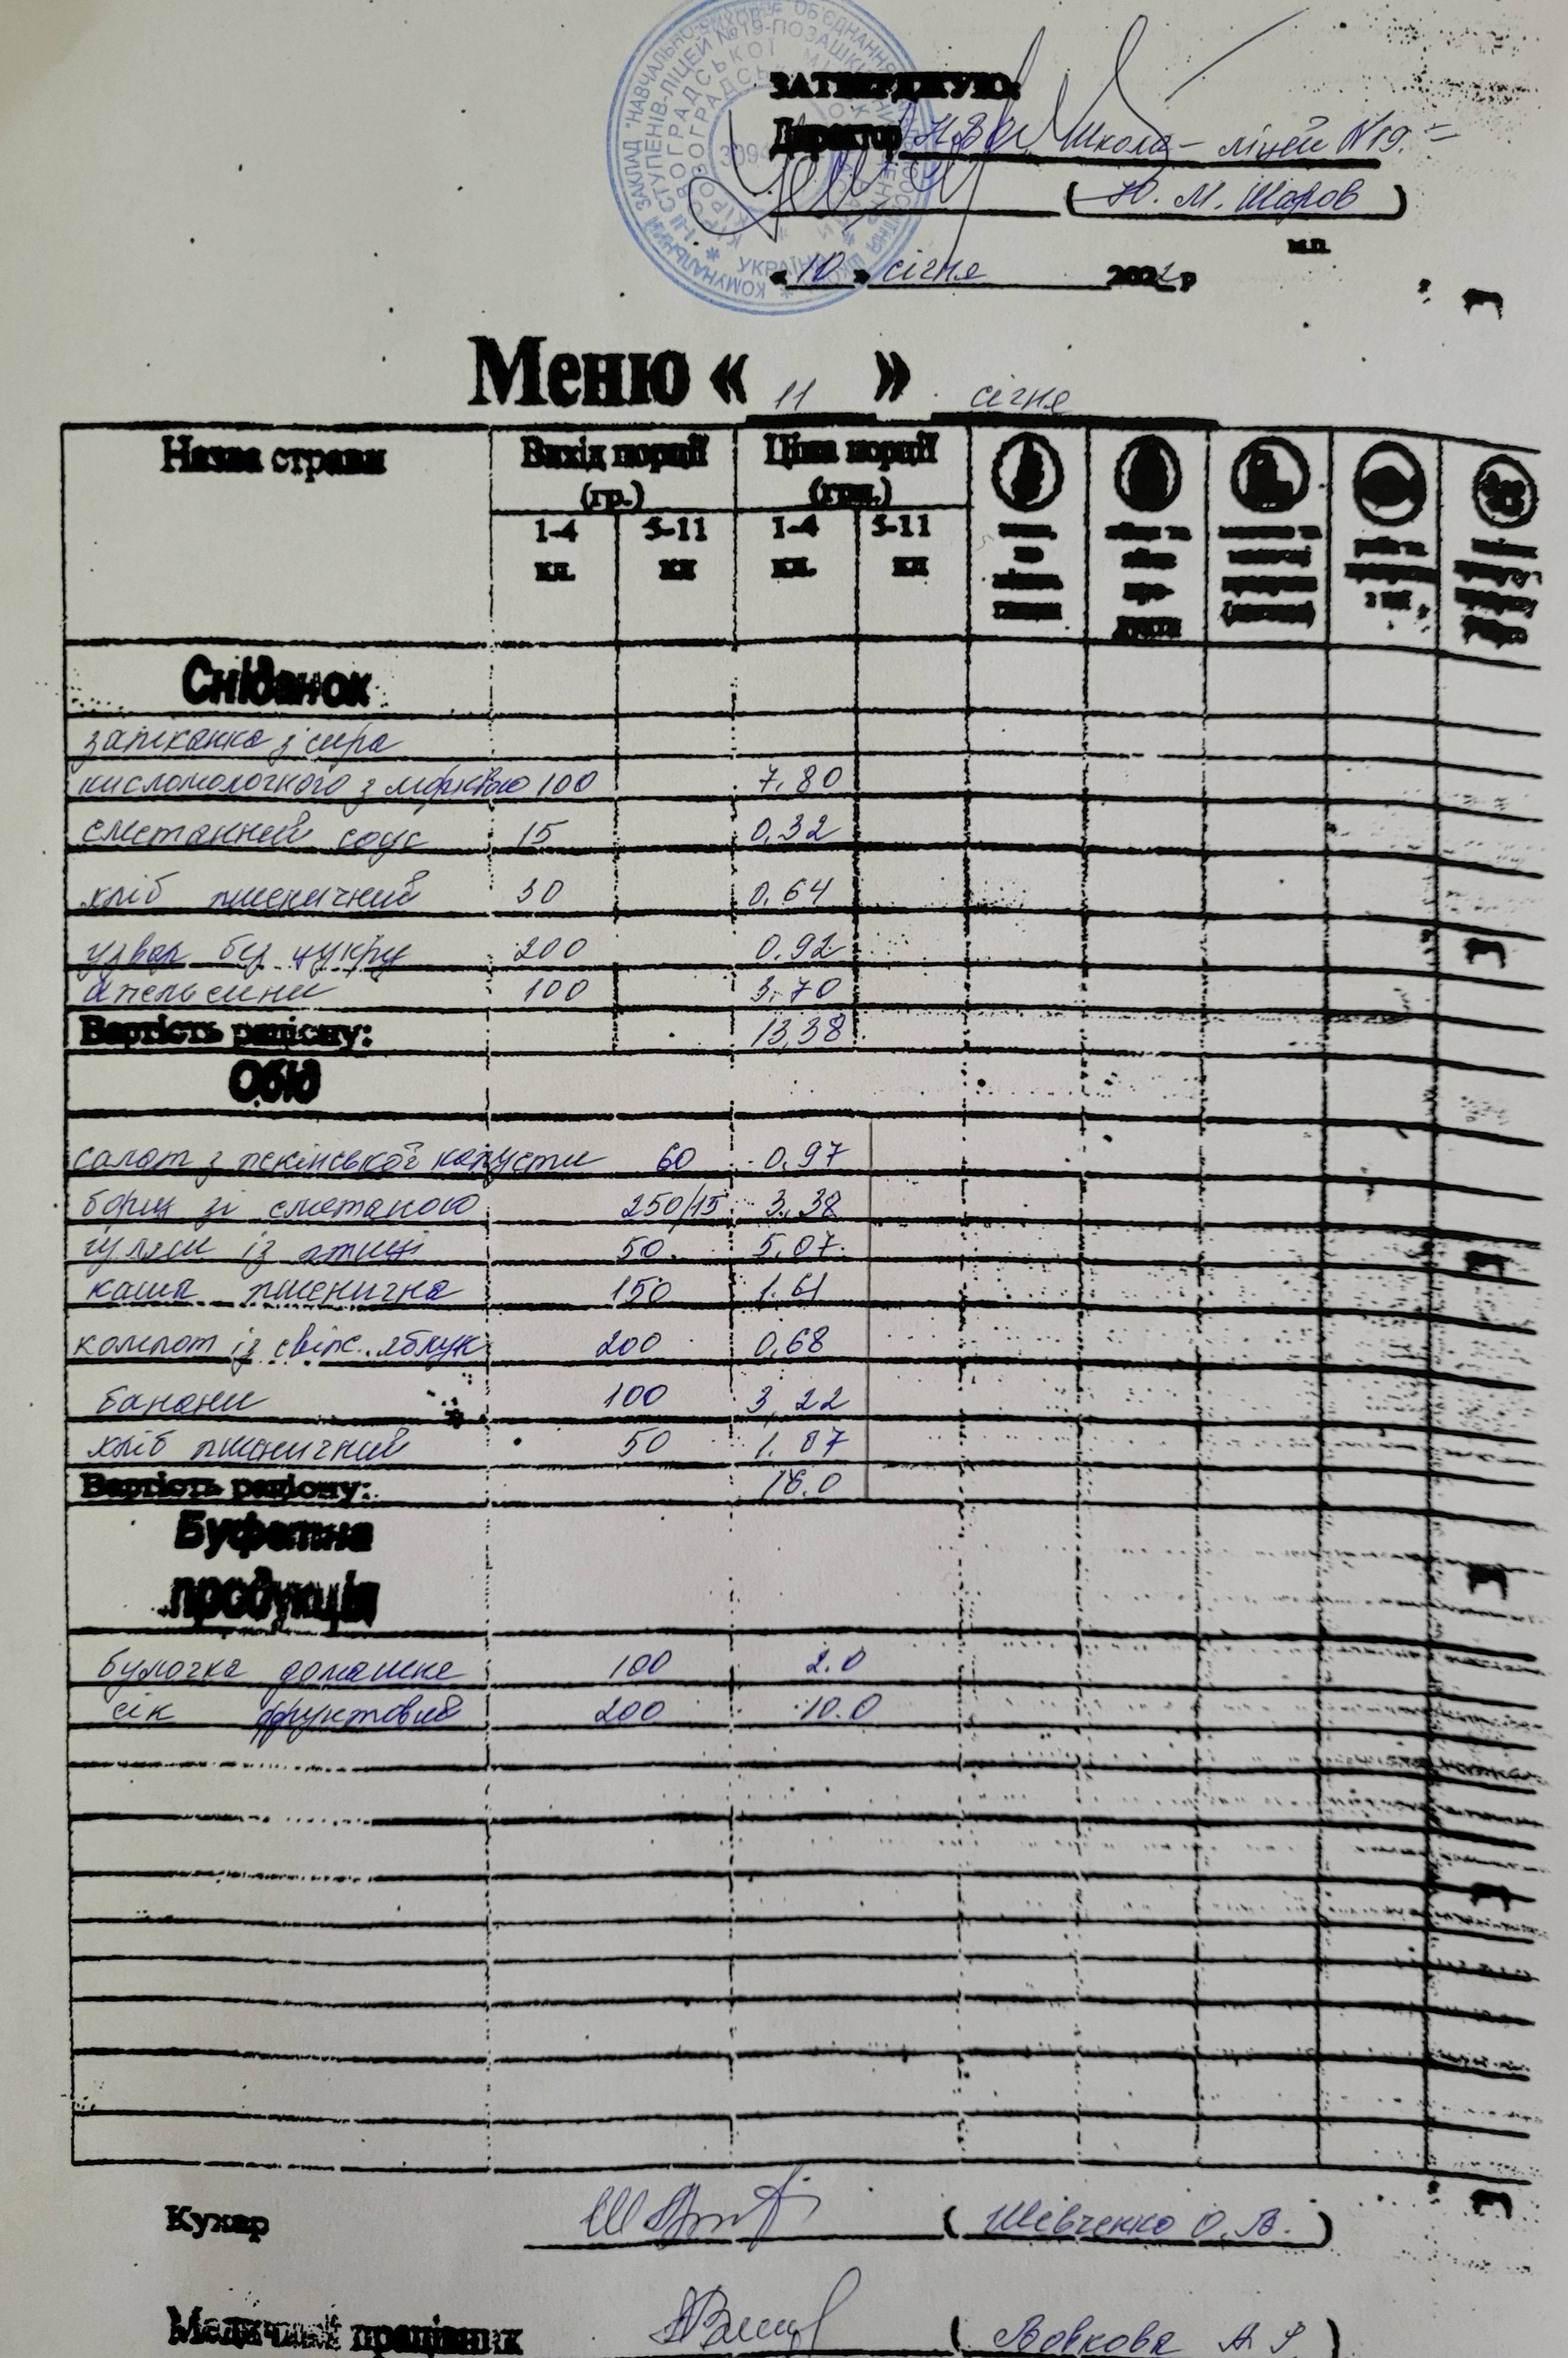 ЗАТВЕРДЖУЮ:
Директор НВО Школа – ліцей №19.
( Ю. М. Шаров )
м.п.
« 10 » січня 2022 р
УКРАЇНА
Меню « 11 » січня
Назва страви Вихід порції (гр.) Ціна порції (грн.)
1-4 кл. 5-11 кл 1-4 кл. 5-11 кл
Сніданок
запіканка з сира
кисломолочного з морквою 100 7,80
сметанний соус 15 0,32
хліб пшеничний 30 0,64
узвар без цукру 200 0,92
апельсини 100 3,70
Вартість раціону: 13,38
Обід
салат з пекінської капусти 60 0,97
борщ зі сметаною 250/15 3,38
гуляш із птиці 50 5,07
каша пшенична 150 1.61
компот із свіж. яблук 200 0,68
банани 100 3,22
хліб пшеничний 50 1.07
Вартість раціону: 16.0
Буфетна
продукція
булочка домашня 100 2.0
сік фруктовий 200 10.0
Кухар ( Шевченко О. В. )
Медичний працівник ( Вовкова А )